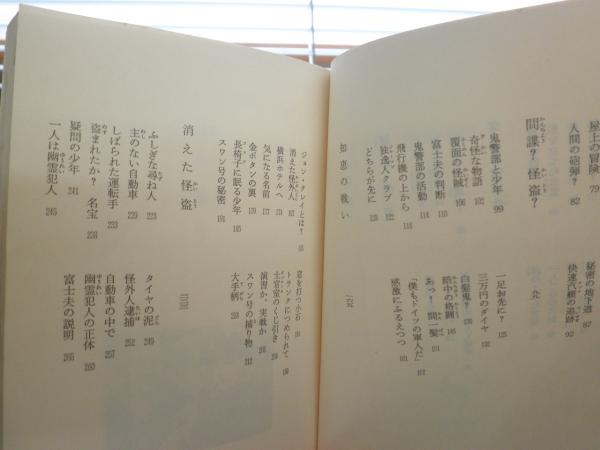 屋上の冒険 79
人間の砲弾? 82
秘密の地下道 87
快速汽艇の追跡 92
間諜? 怪盗?
鬼警部と少年 99
奇怪な物語 102
覆面の怪賊 106
富士夫の判断 110
鬼警部の活動 114
飛行機の上から 118
独逸人クラブ 120
どちらが先に 122
一足お先に? 125
三万円のダイヤ 130
白髪鬼?
暗中の格闘 145
あっ! 間一髪
「僕もドイツの軍人だ」 152
感激にふるえつつ
知恵の戦い
ジョン・クレイとは?
消えた怪外人
横浜ホテルへ
気になる名前
金ボタンの裏
長椅子に眠る少年 185
スワン号の秘密 191
窓を打つ小石
トランクにつめられて
士官室のくじ引き
演習か、実戦か
スワン号の捕り物 212
大手柄
消えた怪盗
ふしぎな尋ね人 223
主のない自動車
しばられた運転手 229
盗まれたか? 名宝 238
疑問の少年 241
一人は幽霊犯人 245
タイヤの泥 249
怪外人逮捕 252
自動車の中で 257
幽霊犯人の正体 260
富士夫の説明 265